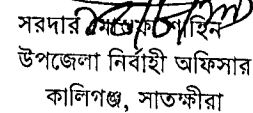 সরদার মোস্তফা শাহিন
উপজেলা নির্বাহী অফিসার
কালিগঞ্জ, সাতক্ষীরা